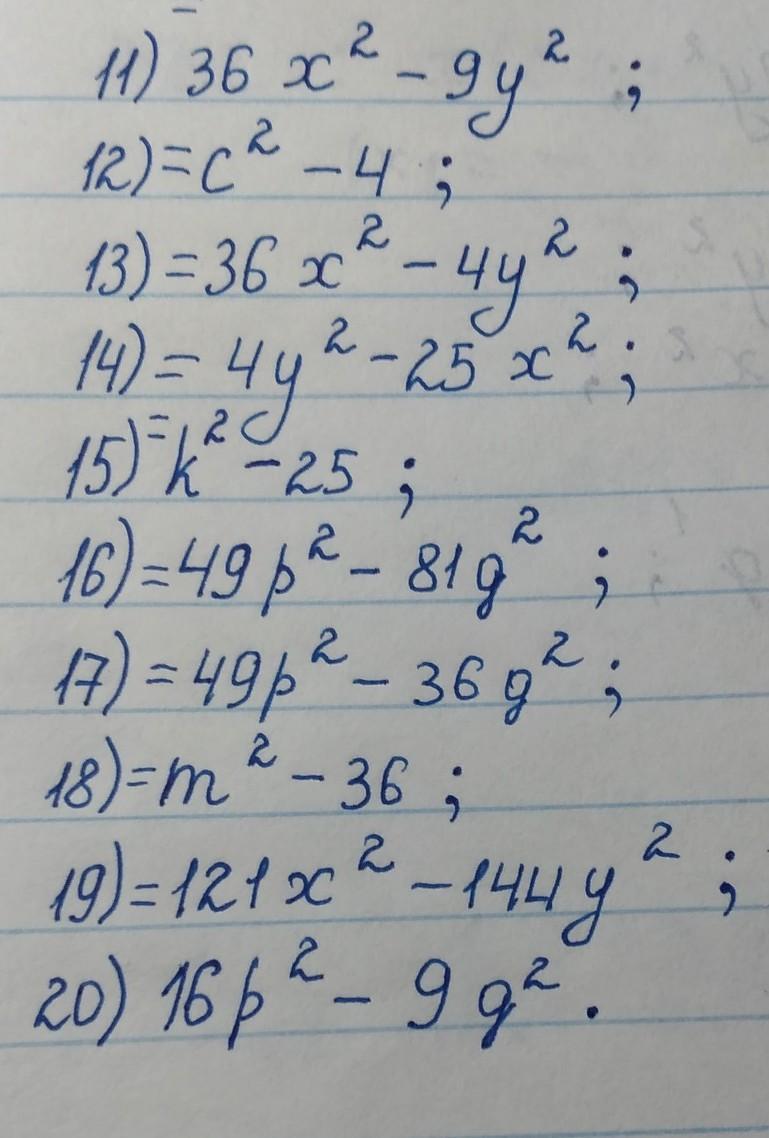 11) 36 x² - 9y² ;
12) = c² - 4 ;
13) = 36 x² - 4y² ;
14) = 4y² - 25 x² ;
15) = k² - 25 ;
16) = 49p² - 81g² ;
17) = 49p² - 36g² ;
18) = m² - 36 ;
19) = 121x² - 144y² ;
20) 16p² - 9g² .